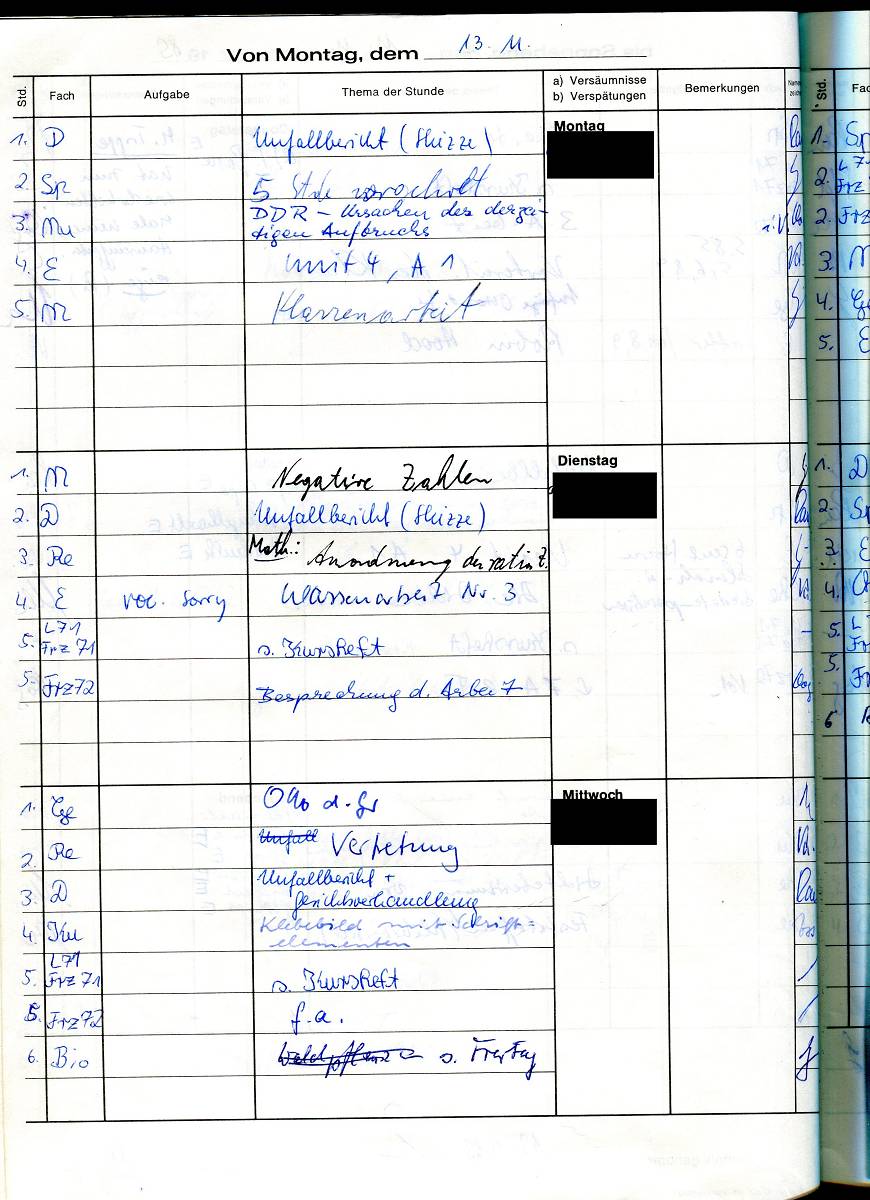 Von Montag, dem 13. 11.
Std. Fach Aufgabe Thema der Stunde a) Versäumnisse b) Verspätungen Bemerkungen
Montag
1. D Unfallbericht (Skizze)
2. Sp 5 Stde
3. Mu DDR – Ursachen des derzei-
tigen Aufbruchs
4. E Unit 4, A 1
5. M Klassenarbeit
Dienstag
1. M Negative Zahlen
2. D Unfallbericht (Skizze)
3. Re Math.: Anordnung der ration Z.
4. E voc. Sorry Klassenarbeit Nr. 3
L71
5. Frz 71 s. Kursheft
5. Frz 72 Besprechung d. Arbeit
Mittwoch
1. Ge Otto d. Gr
2. Re Unfall Vertretung
3. D Unfallbericht +
Gerichtsverhandlung
4. Ku Klebebild mit Schrift=
elementen
L71
5. Frz 71 s. Kursheft
5. Frz 72 f. a.
6. Bio s. Freitag
Std. Fac
1. Sp
L 71
2. Frz
2. Frz
3. M
4. Ge
5. E
1. D
2. Sp
3. E
4.
5. L
Fr
5. Fr
6